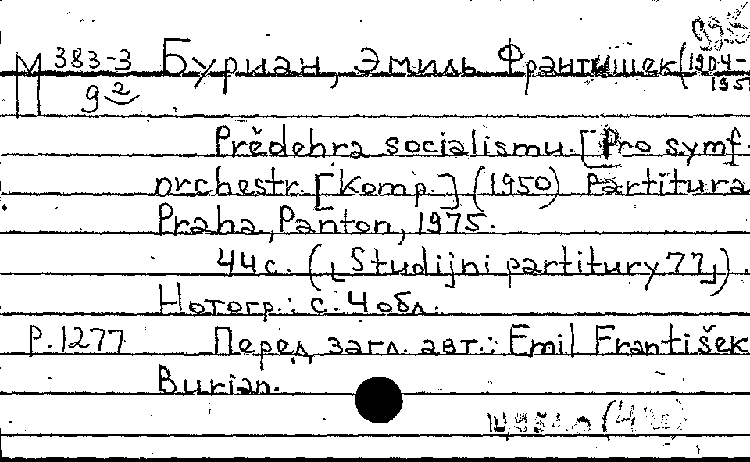 М 383-3 Буриан, Эмиль Франтишек (1904-
9² 195
Předehra socialismu. [Pro symf.
orchestr. [Komp.] (1950) Partitura
Praha, Panton, 1975.
44 с. (Studijni partitury 77).
Нотогр.: с. 4 обл.
Р.1277 Перед загл. авт.: Emil František
Burian.